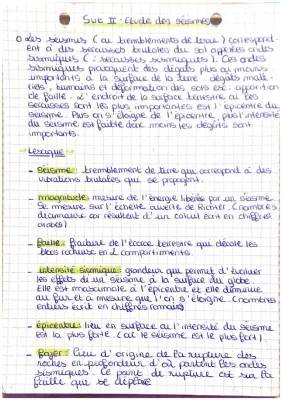 SVT II - étude des séismes
Les séismes (ou tremblements de terre) correspond
ent à des secousses brutales du sol appelées ondes
sismiques (: secousses sismiques). Ces ondes
sismiques provoquent des dégats plus ou moins
importants à la surface de la terre : dégats maté-
riels, humains et déformation des sols ex: apparition
de faille. L'endroit de la surface terrestre où les
secousses sont les plus importantes est l'épicentre du
séisme. Plus on s'éloigne de l'épicentre, plus l'intensité
du séisme est faible donc moins les dégats sont
importants.
Lexique
- séisme: tremblement de terre qui correspond à des
vibrations brutales qui se propagent.
- magnitude: mesure de l'énergie libérée par un séisme
Se mesure sur l'échelle ouverte de Richter (nombres
décimaux car résultent d'un calcul écrit en chiffres
arabes)
- faille: fracture de l'écorce terrestre qui décale les
blocs rocheux en 2 compartiments.
- intensité sismique: grandeur qui permet d'évaluer
les effets d'un séisme à la surface du globe
Elle est maximale à l'épicentre et elle diminue
au fur et à mesure que l'on s'éloigne. (nombres
entiers écrit en chiffres romains)
- épicentre: lieu en surface où l'intensité du séisme
est la plus forte. (où le séisme est le plus fort).
- foyer: lieu d'origine de la rupture des
roches en profondeur d'où partent les ondes
sismiques. Ce point de rupture est sur la
faille qui se déplace